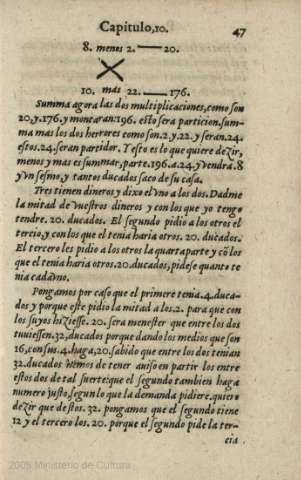 Capitulo,10. 47
8. menos 2.——20.
10. mas 22.——176.
Summa agora las dos multiplicaciones,como son
20,y.176.y montaran.196. esto sera particion.sum-
ma mas los dos herrores como son.2.y.22.y seran.24.
estos.24.seran partidor. Y esto es lo que quiere dezir,
menos y mas es summar, parte.196.a.24.y vendra.8
y vn sesmo,y tantos ducados saco de su casa.
Tres tienen dineros y dixo el vno a los dos.Dadme
la mitad de vuestros dineros y con los que yo tengo
tendre. 20. ducados. El segundo pidio a los otros el
tercio,y con los que el tenia haria otros. 20. ducados.
El tercero les pidio a los otros la quarta parte y cõ los
que el tenia haria otros.20.ducados,pidese quanto te
nia cada vno.
Pongamos por caso que el primero tenia.4.duca-
dos y porque este pidio la mitad a los.2. para que con
los suyos hiziesse. 20. sera menester que entre los dos
tuuiessen.32.ducados porque dando los medios que son
16,con sus.4.haga,20.sabido que entre los dos tenian
32.ducados hemos de tener auiso en partir los entre
estos dos de tal suerte:que el segundo tambien haga
numero justo segun lo que la demanda pidiere.quiero
dezir que destos. 32. pongamos que el segundo tiene
12 y el tercero los. 20. porque el segundo pide la ter-
cia
2005 Ministerio de Cultura